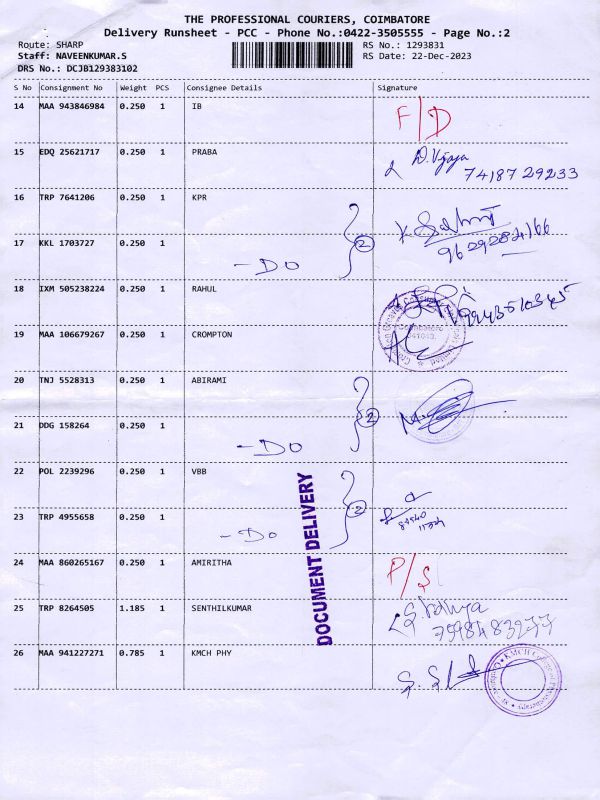 THE PROFESSIONAL COURIERS, COIMBATORE
Delivery Runsheet - PCC - Phone No.:0422-3505555 - Page No.:2
Route: SHARP RS No.: 1293831
Staff: NAVEENKUMAR.S RS Date: 22-Dec-2023
DRS No.: DCJB129383102
S No Consignment No Weight PCS Consignee Details Signature
14 MAA 943846984 0.250 1 IB F/D
15 EDQ 25621717 0.250 1 PRABA D. Vijaya
7418729233
16 TRP 7641206 0.250 1 KPR
17 KKL 1703727 0.250 1 - DO 2 9629284166
18 IXM 505238224 0.250 1 RAHUL
19 MAA 106679267 0.250 1 CROMPTON
Coimbatore
641043.
20 TNJ 5528313 0.250 1 ABIRAMI
21 DDG 158264 0.250 1 - DO 2
22 POL 2239296 0.250 1 VBB
23 TRP 4955658 0.250 1 - DO 2
DOCUMENT DELIVERY
24 MAA 860265167 0.250 1 AMIRITHA P/S
25 TRP 8264505 1.185 1 SENTHILKUMAR
26 MAA 941227271 0.785 1 KMCH PHY S. S
KMCH College of Pharmacy